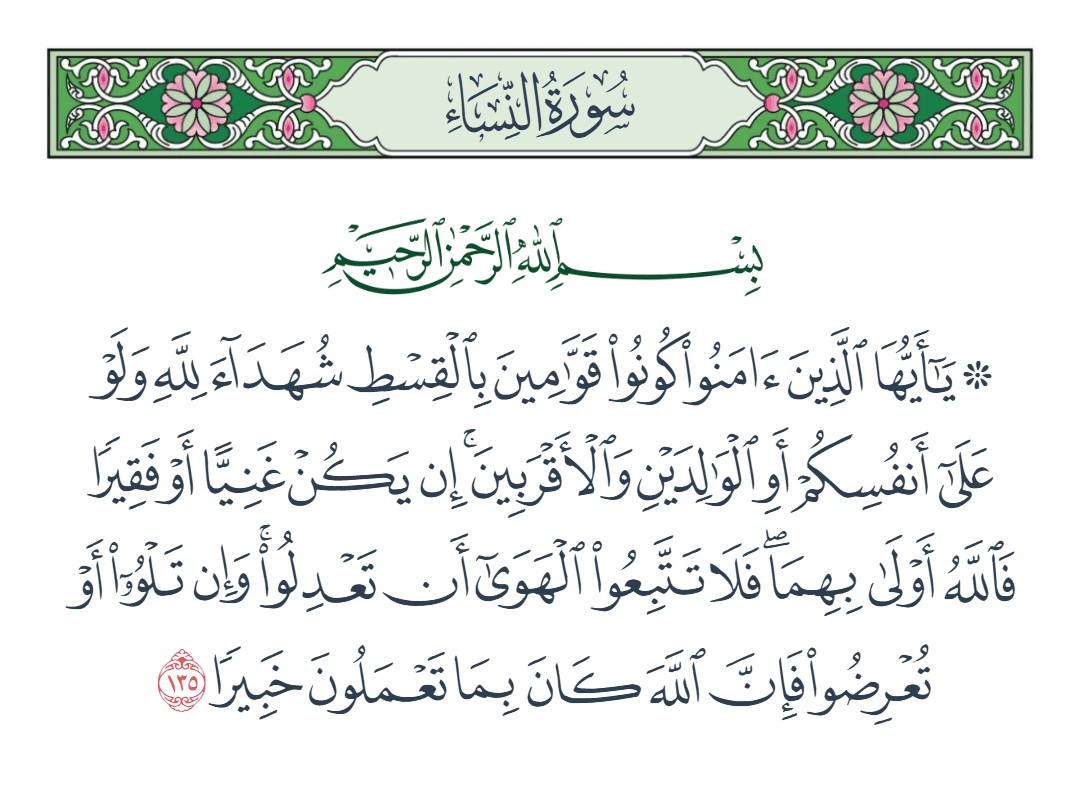 سُورَةُ النِّسَاءِ
بِسْمِ ٱللَّهِ ٱلرَّحْمَٰنِ ٱلرَّحِيمِ
۞ يَٰٓأَيُّهَا ٱلَّذِينَ ءَامَنُوا۟ كُونُوا۟ قَوَّٰمِينَ بِٱلْقِسْطِ شُهَدَآءَ لِلَّهِ وَلَوْ
عَلَىٰٓ أَنفُسِكُمْ أَوِ ٱلْوَٰلِدَيْنِ وَٱلْأَقْرَبِينَ ۚ إِن يَكُنْ غَنِيًّا أَوْ فَقِيرًا
فَٱللَّهُ أَوْلَىٰ بِهِمَا ۖ فَلَا تَتَّبِعُوا۟ ٱلْهَوَىٰٓ أَن تَعْدِلُوا۟ ۚ وَإِن تَلْوُۥٓا۟ أَوْ
تُعْرِضُوا۟ فَإِنَّ ٱللَّهَ كَانَ بِمَا تَعْمَلُونَ خَبِيرًا ١٣٥